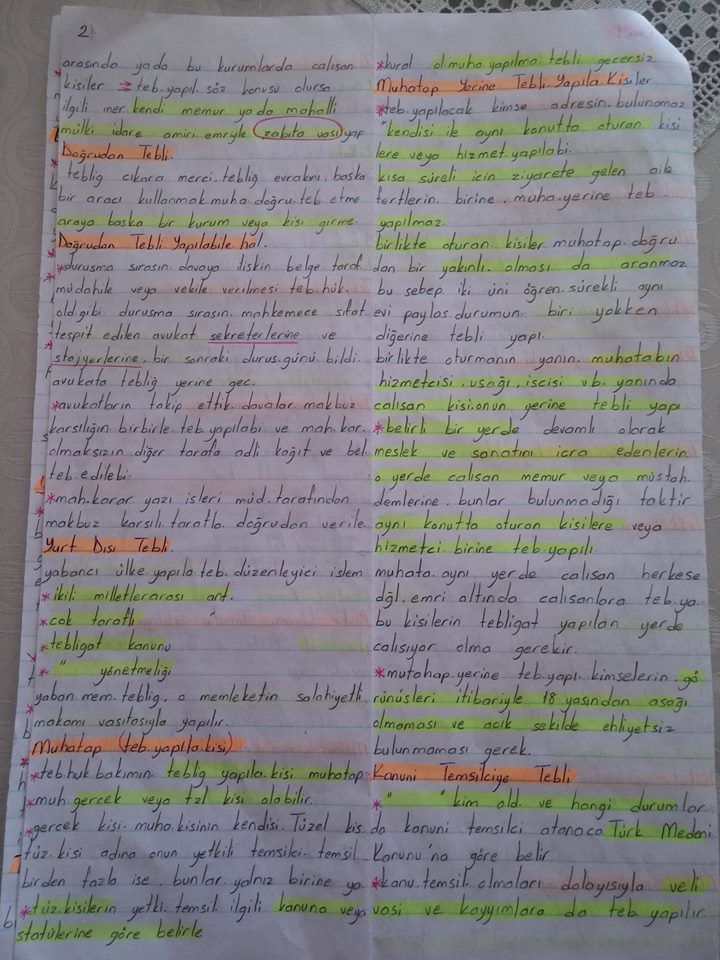 2
arasında yada bu kurumlarda calısan
kisiler → teb.yapıl.söz konusu olursa
ilgili mer. kendi memur yada mahalli
mülki idare amiri emriyle zabıta vası yap
Doğrudan Tebli.
tebliğ cıkara merci.tebliğ evrakını.baska
bir aracı kullanmak.muha.doğru.teb.etme
araya baska bir kurum veya kisi girme.
Doğrudan Tebli Yapılabile hal.
*durusma sırasın.davaya iliskin belge taraf
müdahile veya vekile verilmesi teb.hük.
old.gibi durusma sırasın.mahkemece sıfat
tespit edilen avukat sekreterlerine ve
stajyerlerine.bir sonraki durus.günü bildi.
avukata tebliğ yerine gec.
*avukatların takip ettik.davalar makbuz
karsılığın birbirle.teb.yapılabi ve mah.kar.
olmaksızın diğer tarafa adli kağıt ve bel.
teb.edilebi.
*mah.karar yazı isleri müd.tarafından
makbuz karsılı.tarafla.doğrudan verile
Yurt Dısı Tebli.
yabancı ülke yapıla.teb.düzenleyici islem
*ikili milletlerarası ant.
*cok taraflı "
*tebligat kanunu
*" yönetmeliği
yaban.mem.teblig. o memleketin salahiyetli
makamı vasıtasıyla yapılır.
Muhatap (teb.yapıla.kisi)
*teb.huk.bakımın tebliğ yapıla.kisi muhatap.
*muh.gercek veya tzl kisi olabilir.
*gercek kisi.muha.kisinin kendisi.Tüzel kis
tüz.kisi adına onun yetkili temsilci.temsil
birden fazla ise.bunlar.yalnız birine ya
*tüz.kisilerin yetki.temsil.ilgili kanuna veya
statülerine göre belirle
*kural olmuha.yapılma.tebli gecersiz
Muhatap Yerine Tebli.Yapıla.Kisiler
*teb.yapılacak kimse adresin.bulunamaz
"kendisi ile aynı konutta oturan kisi
lere veya hizmet.yapılabi.
kısa süreli icin ziyarete gelen aile
fertlerin.birine.muha.yerine teb.
yapılmaz.
birlikte oturan kisiler muhatap.doğru
dan bir yakınlı.olması da aranmaz
bu sebep.iki üni öğren.sürekli aynı
evi paylas.durumun. biri yokken
diğerine tebli yapı.
birlikte oturmanın yanın.muhatabın
hizmetcisi.usağı.iscisi vb.yanında
calısan kisi.onun yerine tebli yapı
*belirli bir yerde devamlı olarak
meslek ve sanatını icra edenlerin
o yerde calısan memur veya müstah.
demlerine.bunlar bulunmadığı taktir
aynı konutta oturan kisilere veya
hizmetci birine teb.yapılı
muhata.aynı yerde calısan herkese
dğl.emri altında calısanlara teb.ya
bu kisilerin tebligat yapılan yerde
calısıyor olma gerekir.
*mutahap.yerine teb.yapı.kimselerin.gö
rünüsleri itibariyle 18 yasından asağı
olmaması ve acık sekilde ehliyetsiz
bulunmaması gerek.
Kanuni Temsilciye Tebli
*" " kim old. ve hangi durumlar
da kanuni temsilci atanaca Türk Medeni
Kanunu'na göre belir
*kanu.temsil.olmaları dolayısıyla veli
vasi ve kayyımlara da teb.yapılır